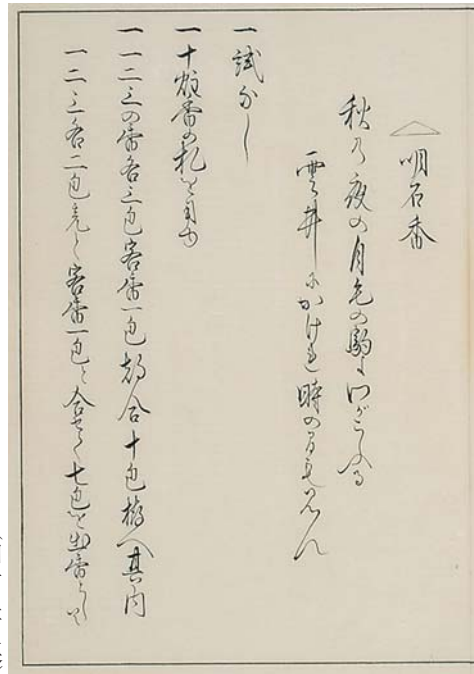 明石香
秋の夜の月毛の駒よわがこふる
雲井にかけれ時の間も見ん
一 試なし
一 十炷香の札を用ゆ
一 一二三の香各三包客香一包都合十包拵へ其内
一 二三各二包充と客香一包と合せて七包を出香